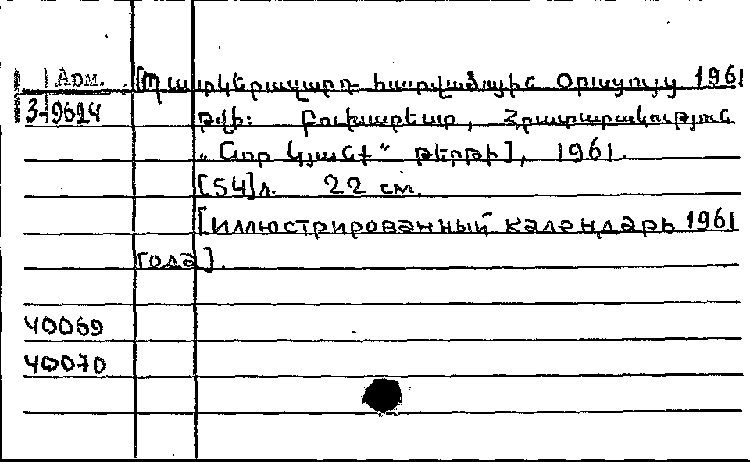 Арм. [Պատկերազարդ խառնածային Օրացույց 1961
3-9624 թվի: Բուխարեստ, Հրատարակություն
„Նոր Կյանք“ թերթի], 1961.
[54]л. 22 см.
[Иллюстрированный календарь 1961
года].
40069
40070